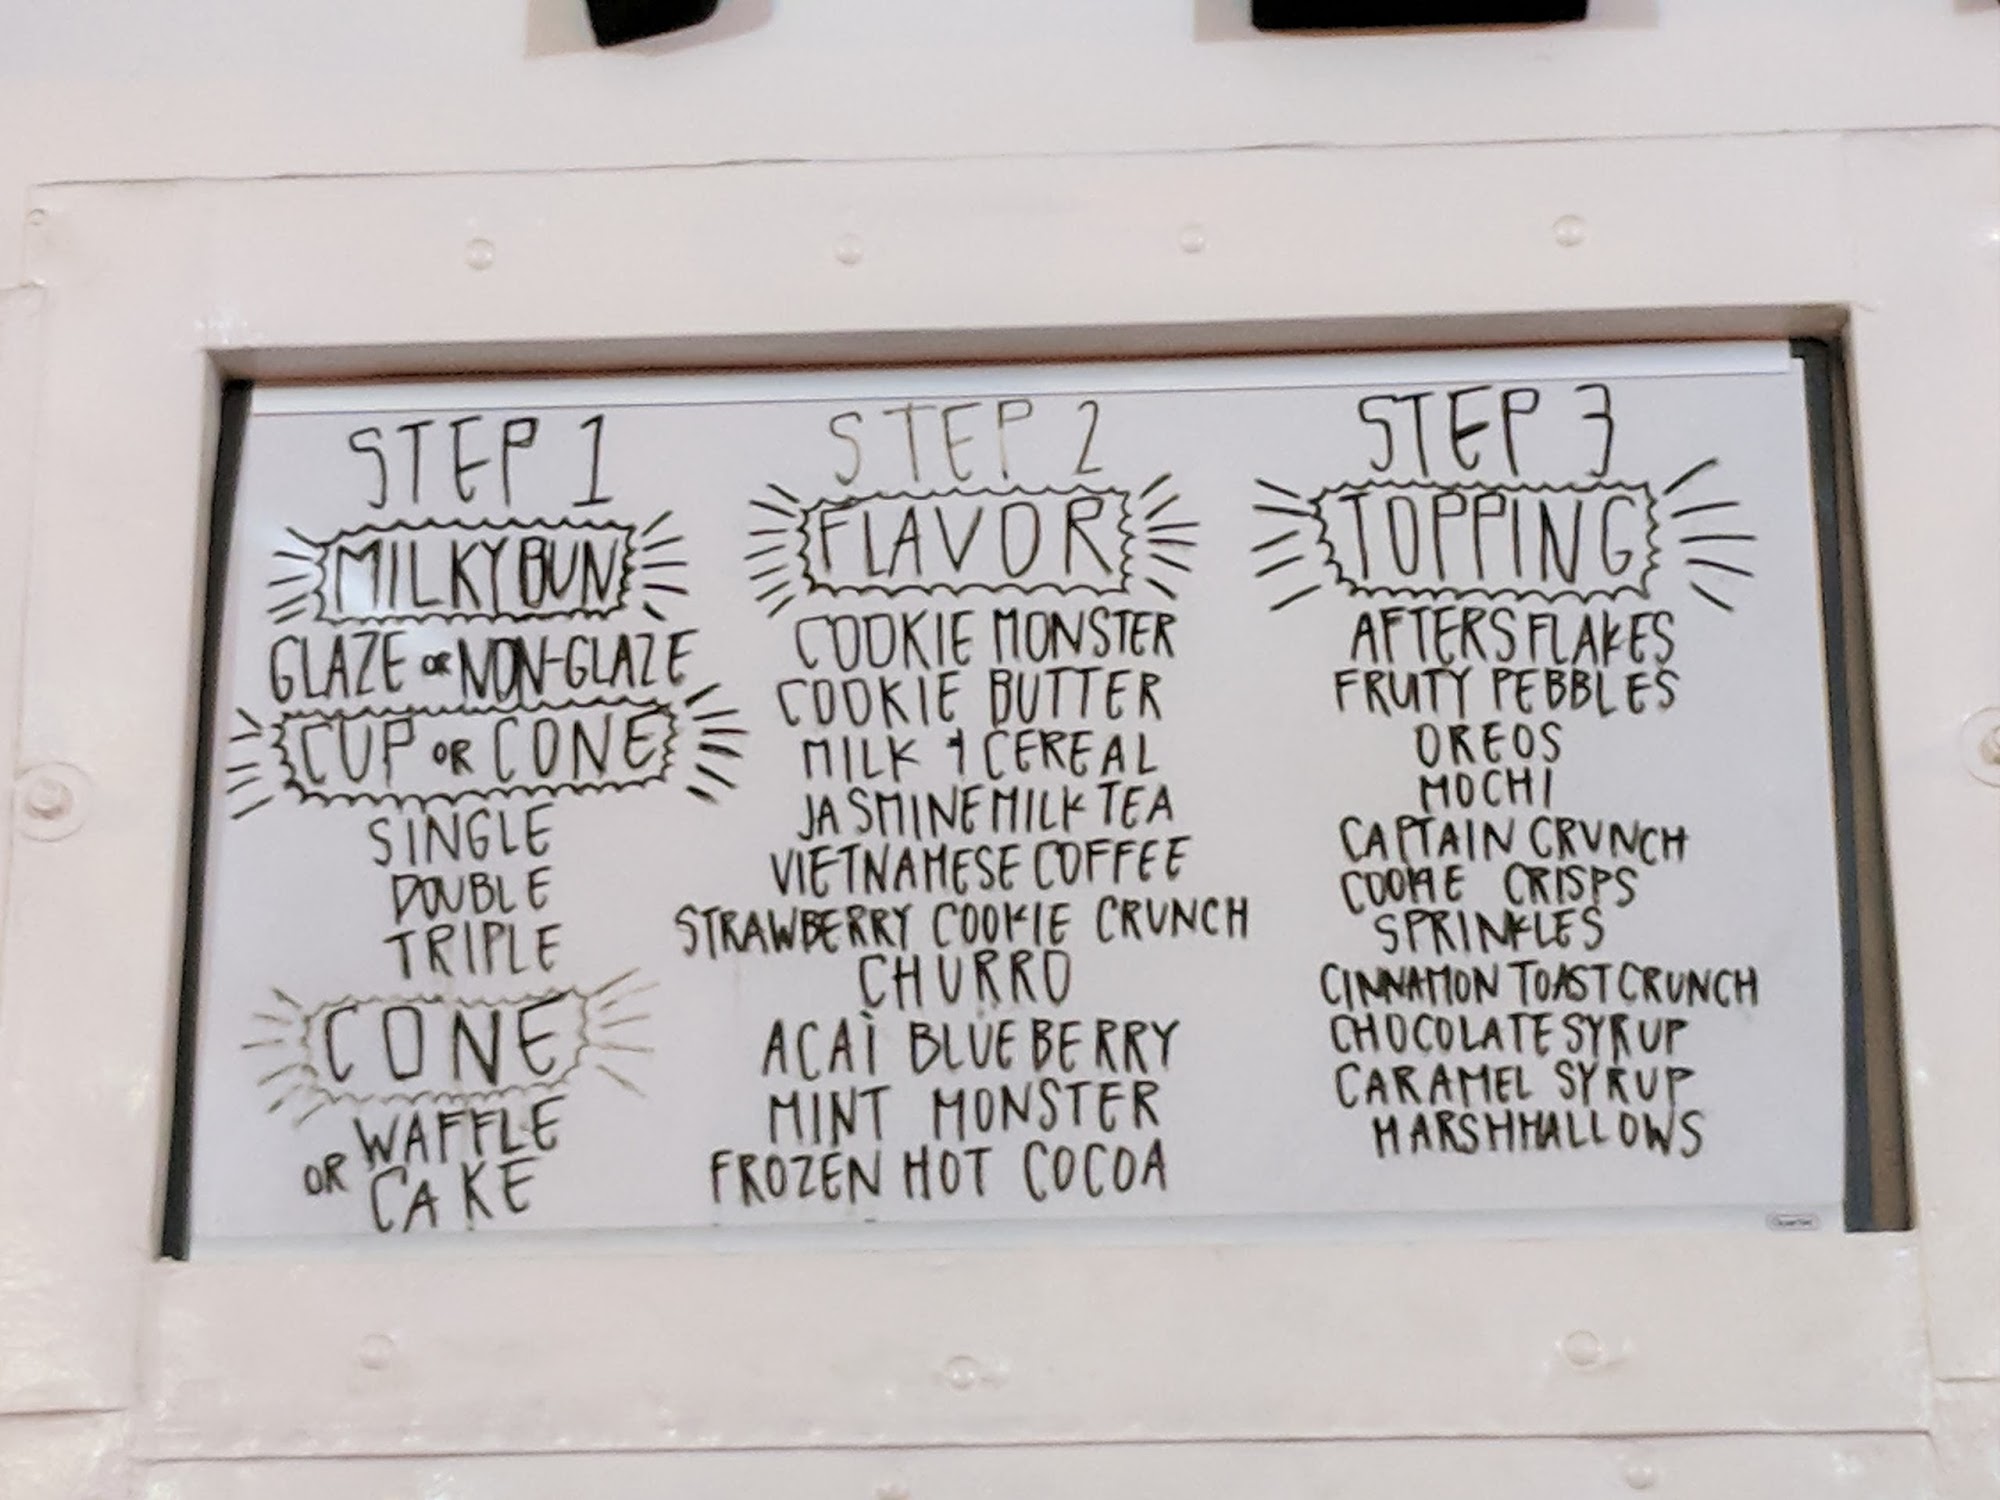 STEP 1
MILKY BUN
GLAZE OR NON-GLAZE
CUP OR CONE
SINGLE
DOUBLE
TRIPLE
CONE
WAFFLE
OR CAKE
STEP 2
FLAVOR
COOKIE MONSTER
COOKIE BUTTER
MILK & CEREAL
JASMINE MILK TEA
VIETNAMESE COFFEE
STRAWBERRY COOKIE CRUNCH
CHURRO
ACAÌ BLUEBERRY
MINT MONSTER
FROZEN HOT COCOA
STEP 3
TOPPING
AFTERS FLAKES
FRUITY PEBBLES
OREOS
MOCHI
CAPTAIN CRUNCH
COOKIE CRISPS
SPRINKLES
CINNAMON TOAST CRUNCH
CHOCOLATE SYRUP
CARAMEL SYRUP
MARSHMALLOWS